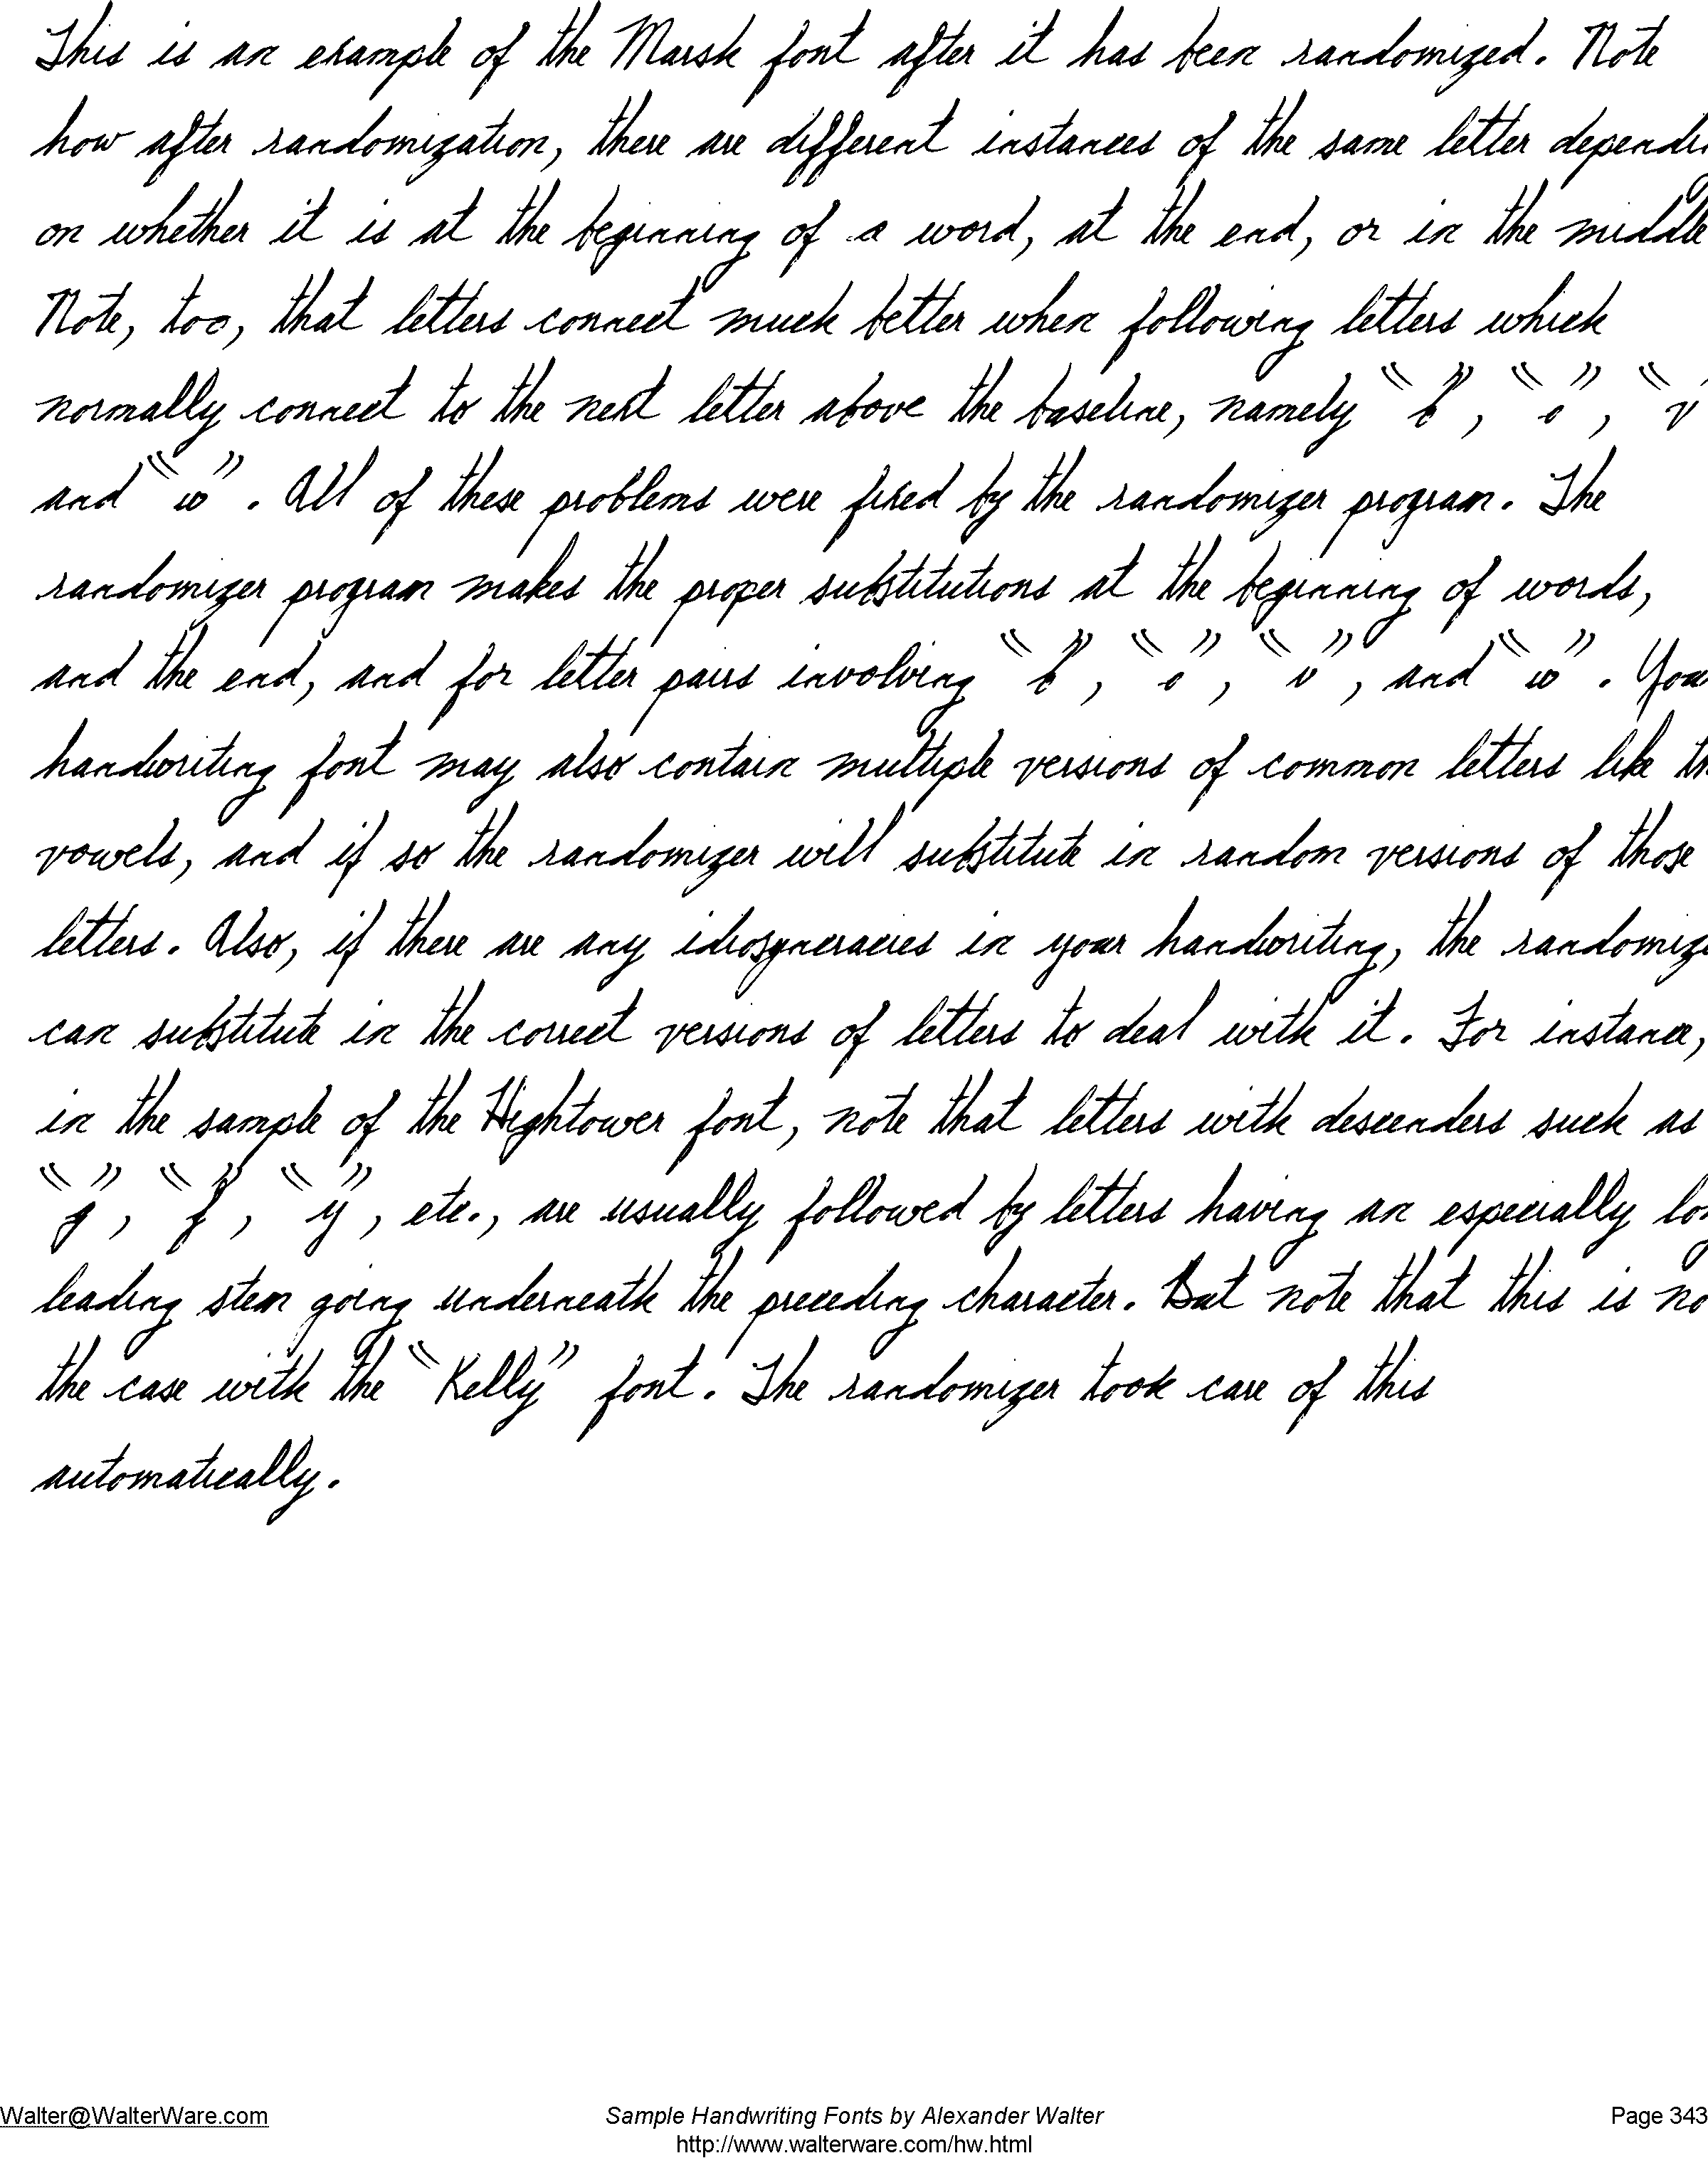 This is an example of the Marsh font after it has been randomized. Note
how after randomization, there are different instances of the same letter dependi
on whether it is at the beginning of a word, at the end, or in the middle
Note, too, that letters connect much better when following letters which
normally connect to the next letter above the baseline, namely “b”, “o”, “v
and “w”. All of these problems were fixed by the randomizer program. The
randomizer program makes the proper substitutions at the beginning of words,
and the end, and for letter pairs involving “b”, “o”, “v”, and “w”. You
handwriting font may also contain multiple versions of common letters like th
vowels, and if so the randomizer will substitute in random versions of those
letters. Also, if there are any idiosyncracies in your handwriting, the randomize
can substitute in the correct versions of letters to deal with it. For instance,
in the sample of the Hightower font, note that letters with descenders such as
“g”, “f”, “y”, etc., are usually followed by letters having an especially lon
leading stem going underneath the preceding character. But note that this is no
the case with the “Kelly” font. The randomizer took care of this
automatically.
Walter@WalterWare.com Sample Handwriting Fonts by Alexander Walter Page 343
http://www.walterware.com/hw.html